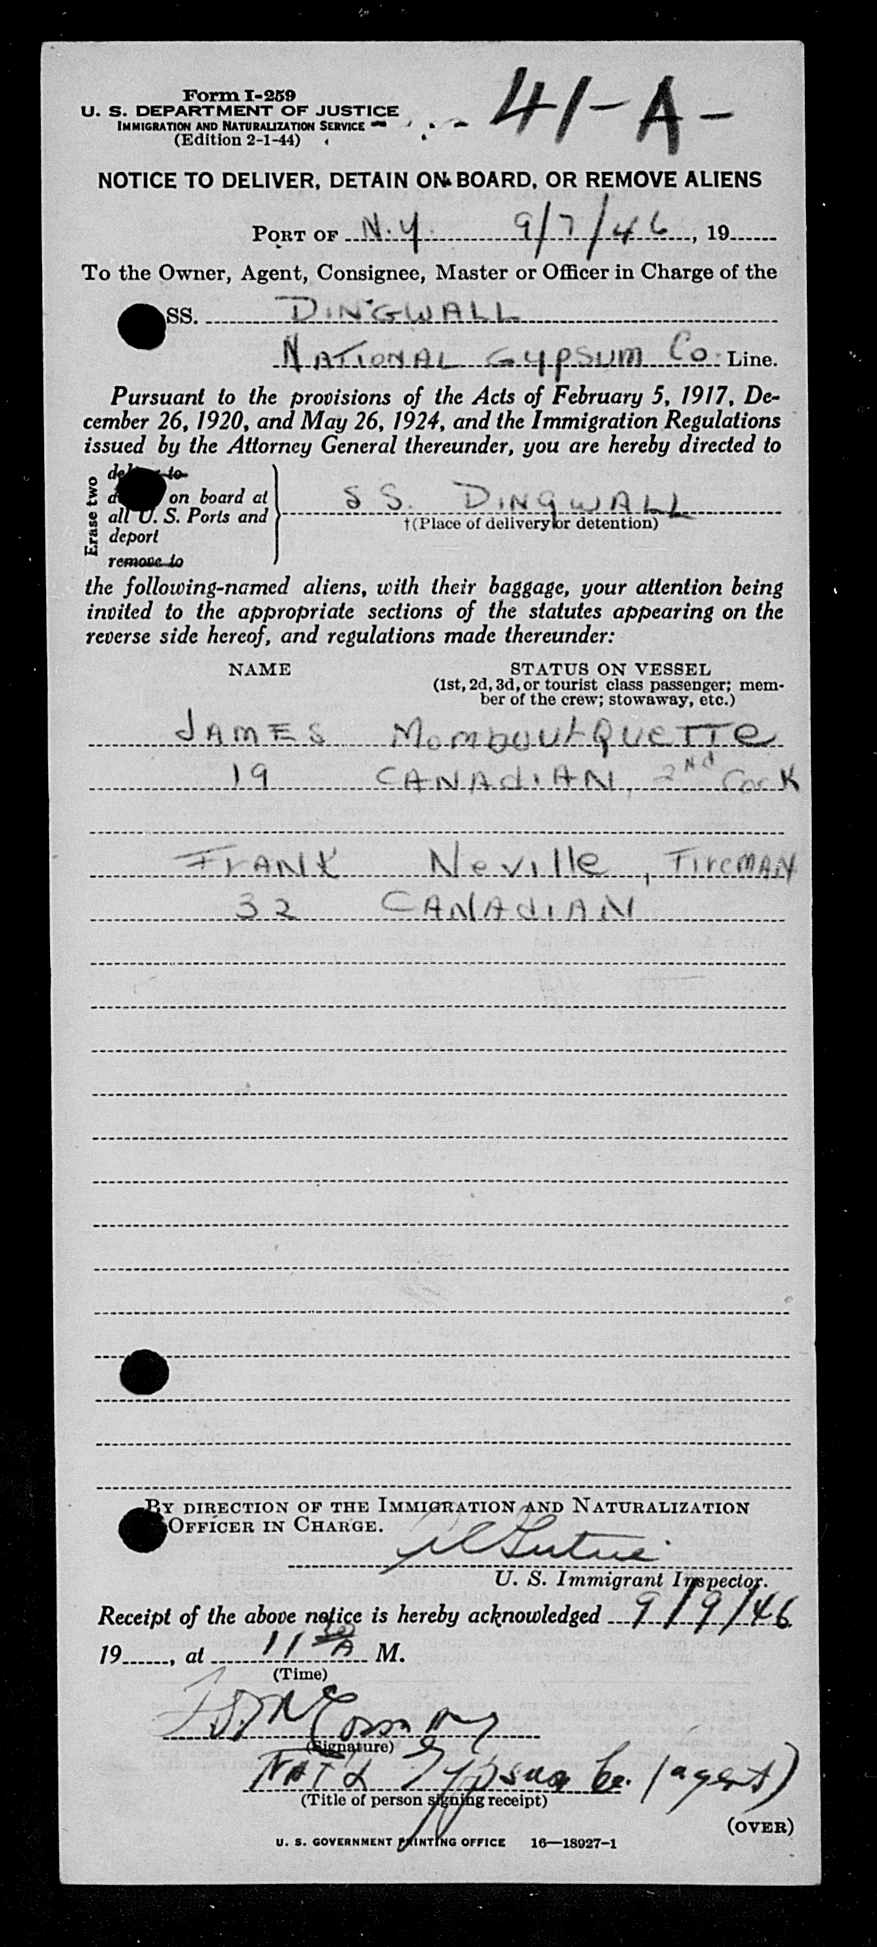 Form I-259
U. S. DEPARTMENT OF JUSTICE
IMMIGRATION AND NATURALIZATION SERVICE
(Edition 2-1-44)
41-A-
NOTICE TO DELIVER, DETAIN ON BOARD, OR REMOVE ALIENS
PORT OF N.Y. 9/7/46, 19
To the Owner, Agent, Consignee, Master or Officer in Charge of the
SS. DINGWALL
NATIONAL GYPSUM Co. Line.
Pursuant to the provisions of the Acts of February 5, 1917, De-
cember 26, 1920, and May 26, 1924, and the Immigration Regulations
issued by the Attorney General thereunder, you are hereby directed to
Erase two
to
on board at
all U. S. Ports and
deport
remove to
SS. DINGWALL
†(Place of delivery or detention)
the following-named aliens, with their baggage, your attention being
invited to the appropriate sections of the statutes appearing on the
reverse side hereof, and regulations made thereunder:
NAME STATUS ON VESSEL
(1st, 2d, 3d, or tourist class passenger; mem-
ber of the crew; stowaway, etc.)
JAMES MombourQueTTe
19 CANAdiAN, 2Nd CooK
FrANK Neville, FireMAN
32 CANAdiAN
BY DIRECTION OF THE IMMIGRATION AND NATURALIZATION
OFFICER IN CHARGE.
U. S. Immigrant Inspector.
Receipt of the above notice is hereby acknowledged 9/9/46
19, at 11 A M.
(Time)
(Signature)
Nat'l Gypsum Co. (agent)
(Title of person signing receipt)
(OVER)
U. S. GOVERNMENT PRINTING OFFICE 16—18927-1